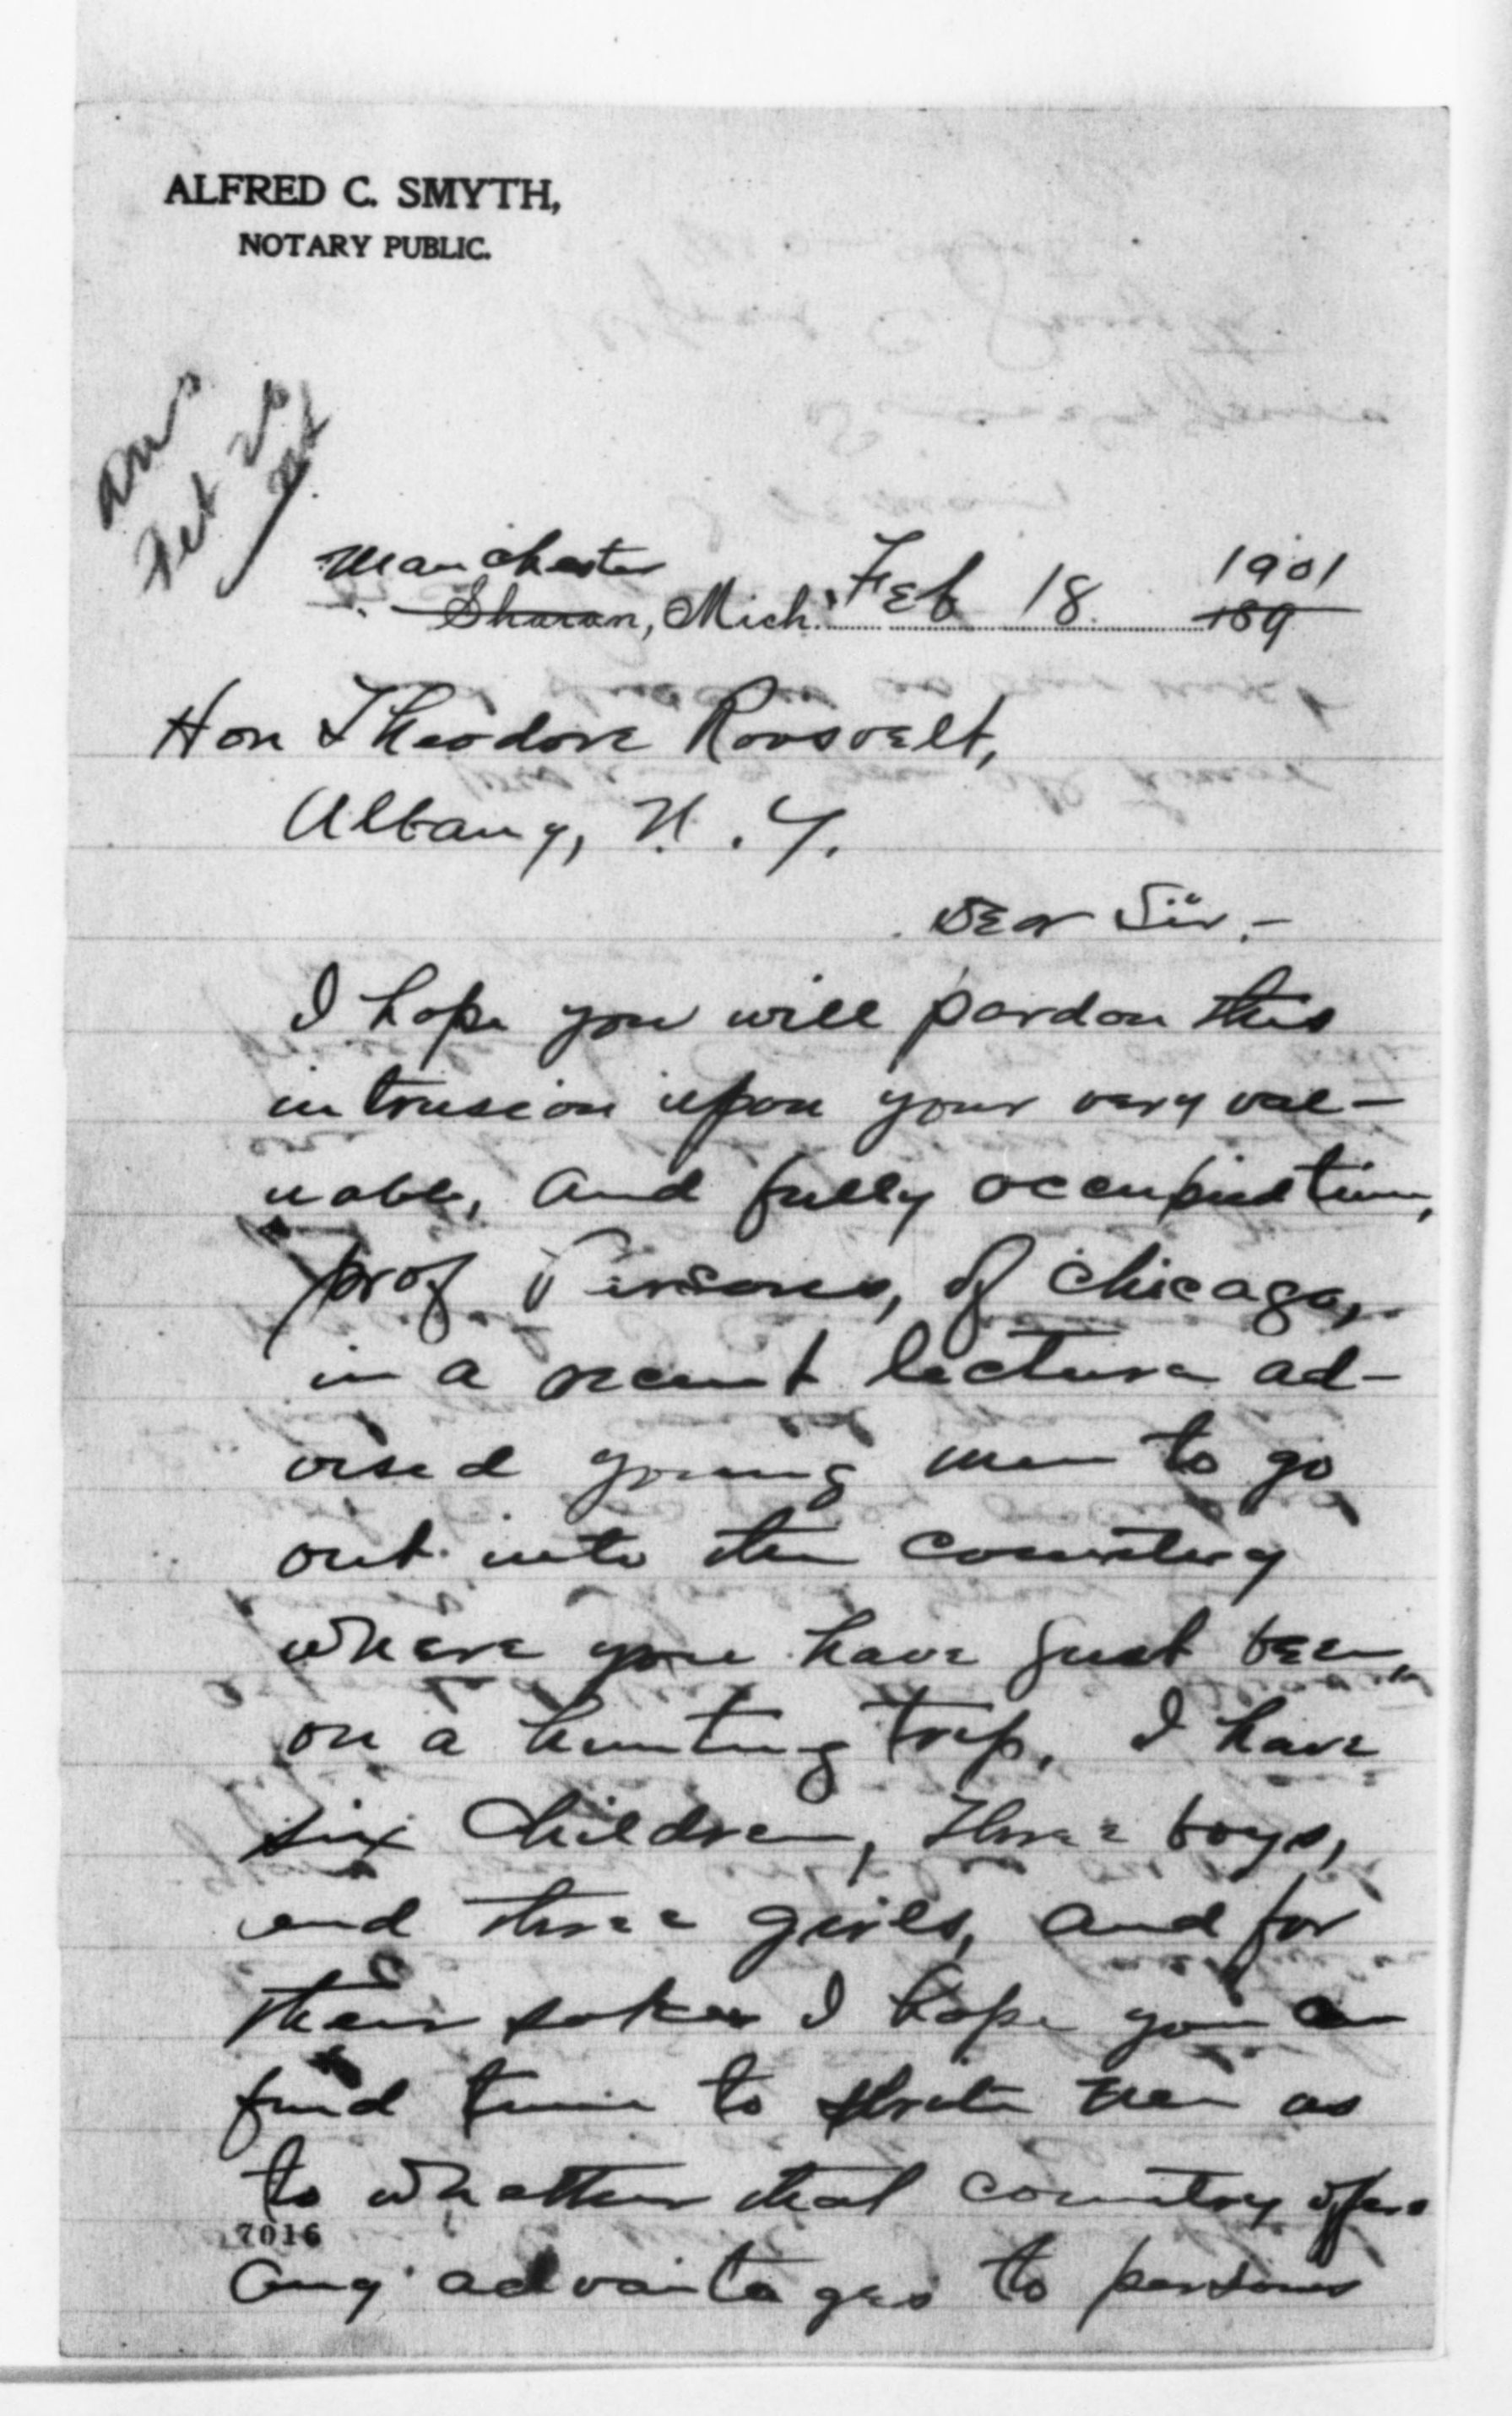 ALFRED C. SMYTH,
NOTARY PUBLIC.
ans
Feb
Manchester
Sharon, Mich. Feb 18 1901
189
Hon Theodore Roosvelt,
Albany, N. Y.
Dear Sir,-
I hope you will pardon this
intrusion upon your very val-
uable, and fully occupied time,
prof , of Chicago,
in a recent lecture ad-
vised young men to go
out into the country
where you have just been,
on a hunting trip. I have
six children, three boys,
and three girls, and for
their sakes I hope you can
find time to write me as
to whether that country offers
7016
any advantages to persons